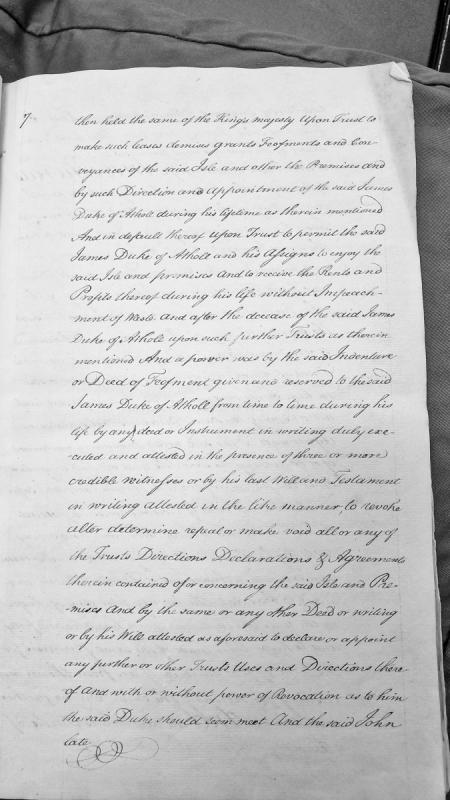 7
then held the same of the Kings majesty Upon Trust to
make such leases demises grants Feofments and Con-
veyances of the said Isle and other the Premises and
by such Direction and appointment of the said James
Duke of Atholl during his lifetime as therein mentioned
And in default thereof upon Trust to permit the said
James Duke of Atholl and his Assigns to enjoy the
said Isle and premises And to receive the Rents and
Profits thereof during his life without Impeach-
ment of Waste And after the decease of the said James
Duke of Atholl upon such further Trusts as therein
mentioned And a power was by the said Indenture
or Deed of Feofment given and reserved to the said
James Duke of Atholl from time to time during his
life by any deed or Instrument in writing duly exe-
cuted and attested in the presence of three or more
credible witnesses or by his last Will and Testament
in writing attested in the like manner to revoke
alter determine repeal or make void all or any of
the Trusts Directions Declarations & Agreements
therein contained of or concerning the said Isle and Pre-
-mises And by the same or any other Deed or writing
or by his Will attested as aforesaid to declare or appoint
any further or other Trusts Uses and Directions there
of And with or without power of Revocation as to him
the said Duke should seem meet And the said John
late